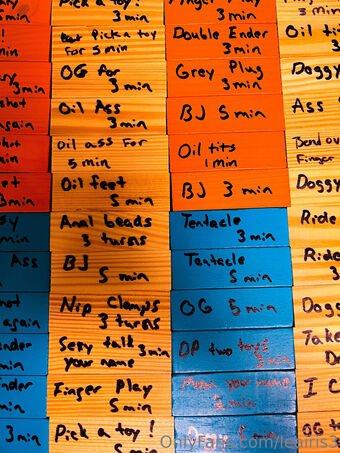 Pick a toy!
3 min
Pick a toy
for 5 min
OG for
3 min
Oil Ass
3 min
Oil ass for
5 min
Oil feet
5 min
Anal beads
3 turns
BJ
5 min
Nip Clamps
3 turns
Sexy talk 3 min
your name
Finger Play
5 min
Pick a toy!
5 min
3 min
Double Ender
3 min
Grey Plug
3 min
BJ 5 min
Oil tits
1 min
BJ 3 min
Tentacle
3 min
Tentacle
5 min
OG 5 min
DP two toys
your name
2 min
5 min
again
3 min
min
Ass
again
3 min
3 min
Oil tit
3 min
Doggy
3 min
Ass
Bend ov
Finger
Doggy
Ride
3
Ride
3
Dogg
Take
I C
OG t
OnlyFans.com/leairis3